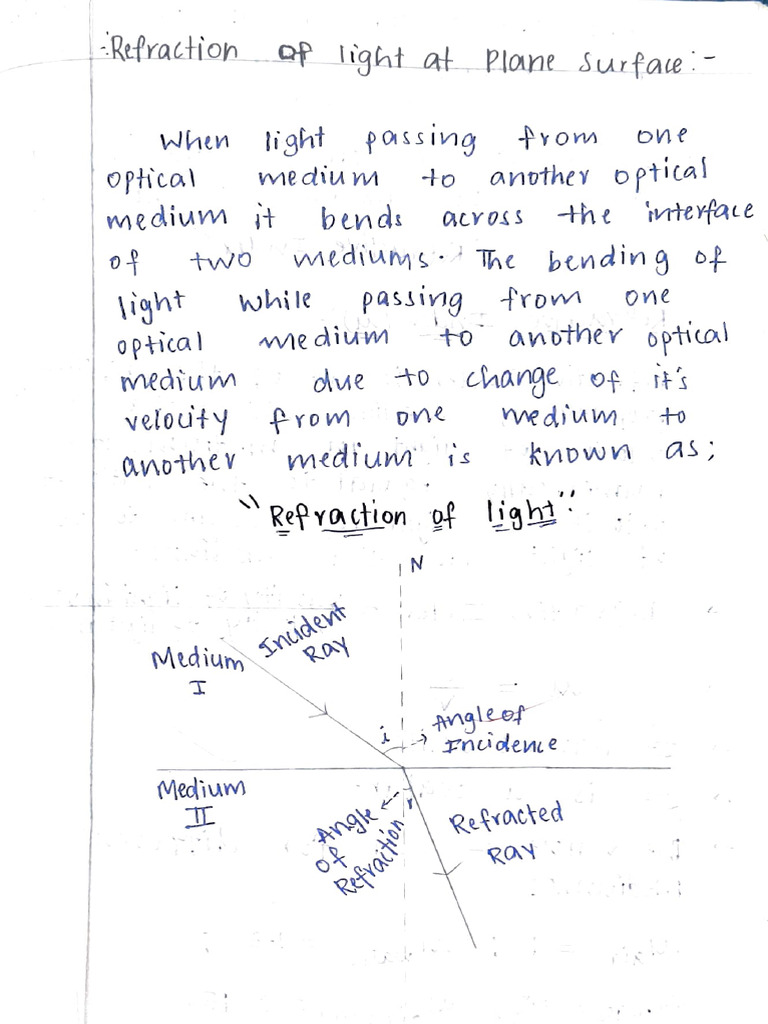 :Refraction of light at Plane Surface:-
When light passing from one
optical medium to another optical
medium it bends across the interface
of two mediums. The bending of
light while passing from one
optical medium to another optical
medium due to change of it's
velocity from one medium to
another medium is known as;
"Refraction of light".
N
Incident
Ray
Medium
I
i
Angle of
Incidence
Medium
II
r
Angle
of
Refraction
Refracted
Ray